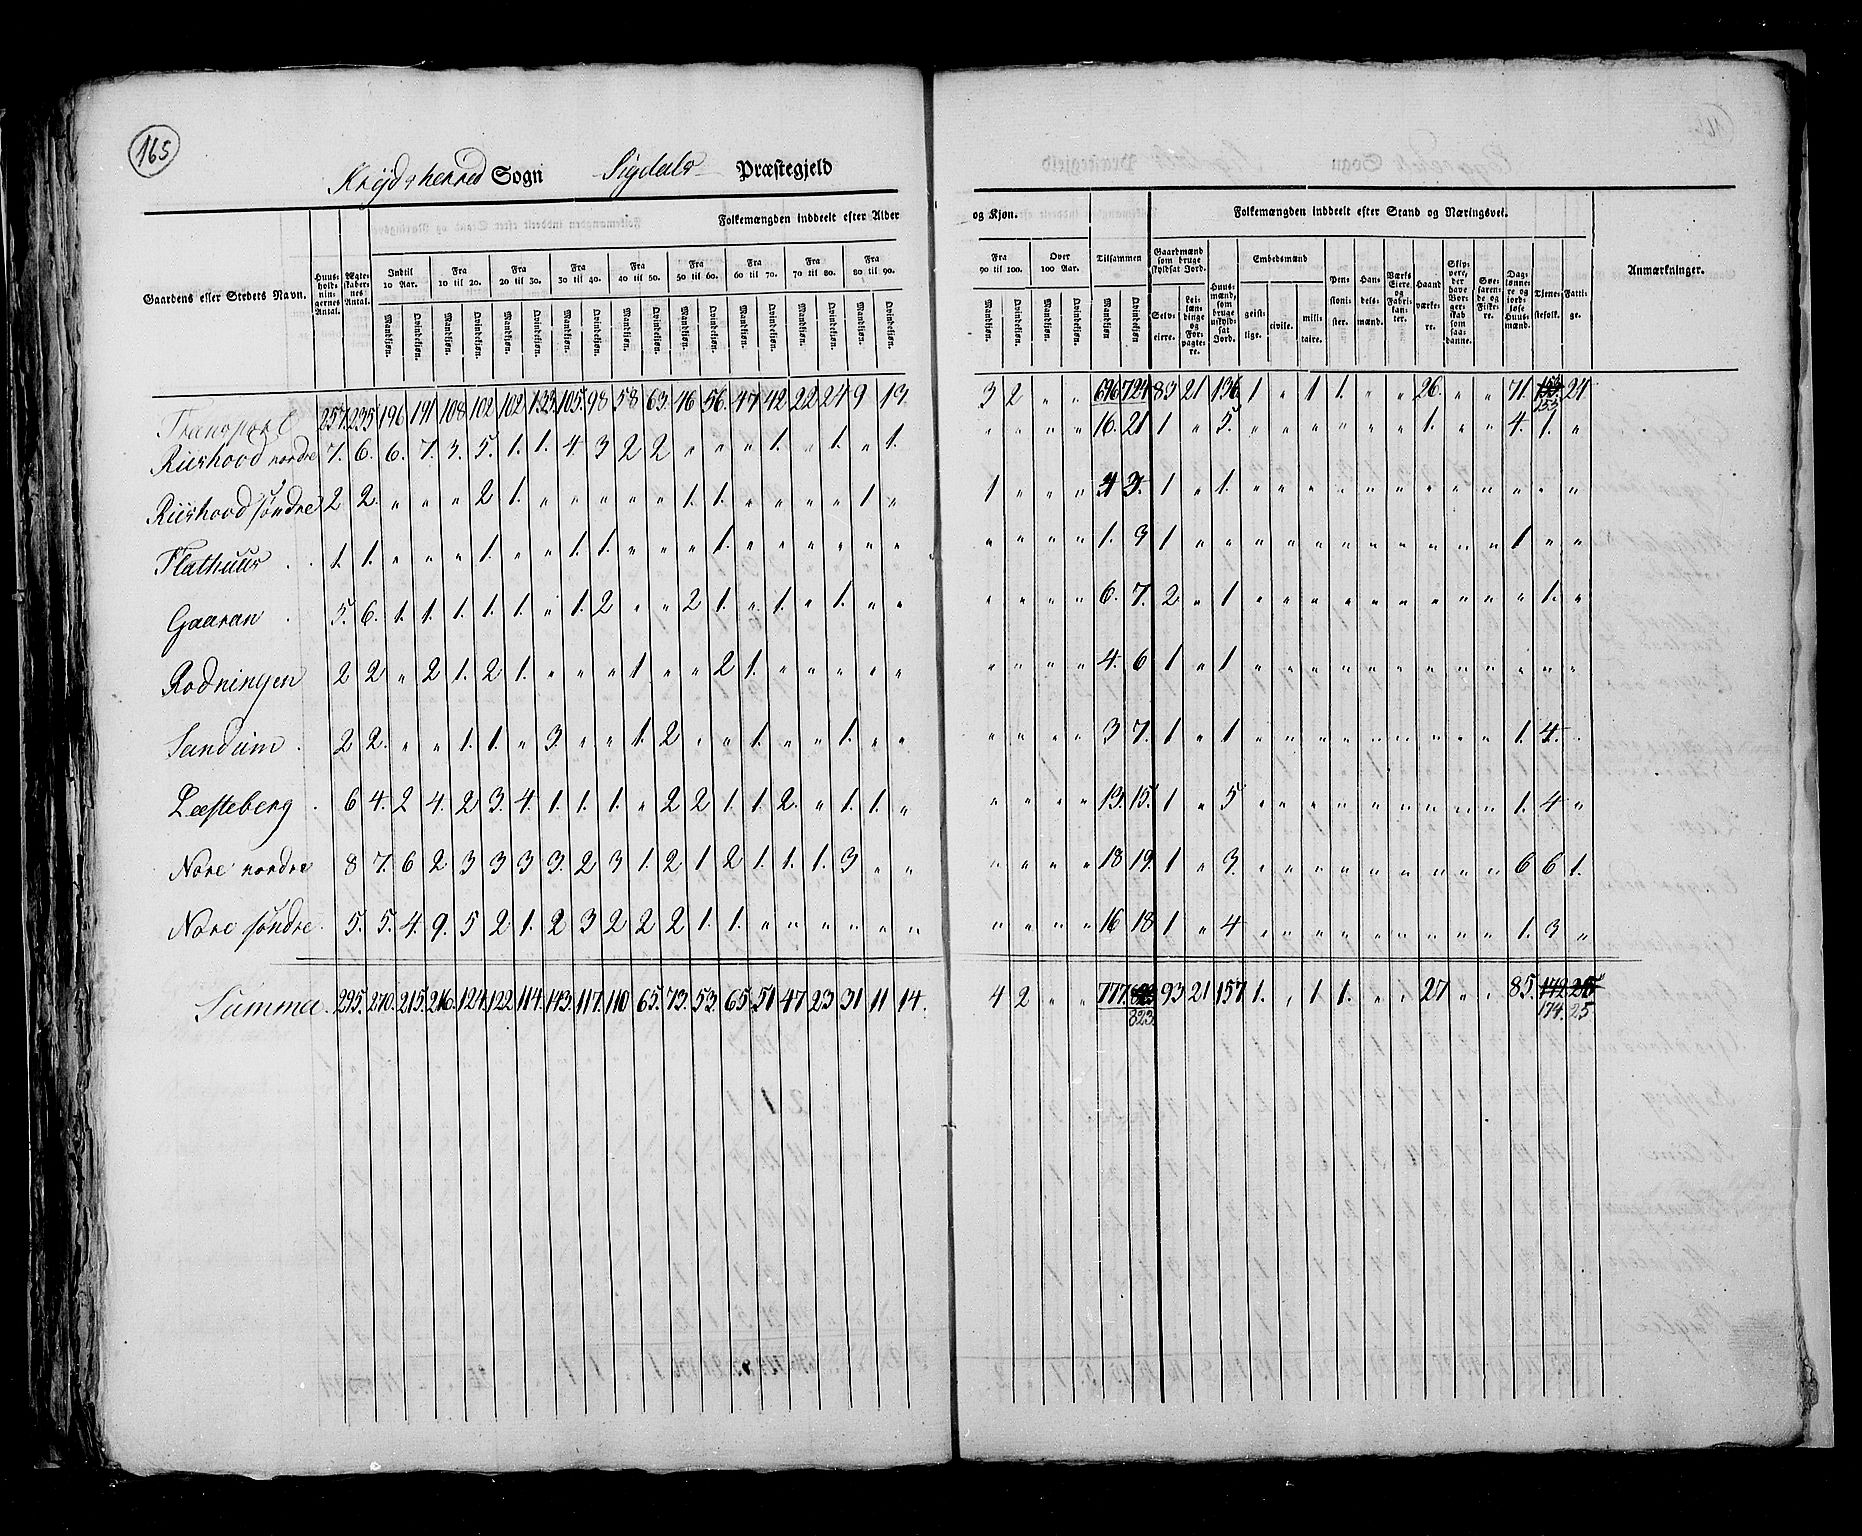 165
Krydsherred Sogn Sigdals Præstegjeld
Folkemængden inddeelt efter Alder og Kjøn. Folkemængden inddeelt efter Stand og Næringsvei.
Gaardens eller Stedets Navn. Huusholdningernes Antal. Ægteskabernes Antal. Indtil 10 Aar. Fra 10 til 20. Fra 20 til 30. Fra 30 til 40. Fra 40 til 50. Fra 50 til 60. Fra 60 til 70. Fra 70 til 80. Fra 80 til 90. Fra 90 til 100. Over 100 Aar. Tilsammen Gaardmænd som bruge skyldsat Jord. Huusmænd, som bruge uskyldsat Jord. Embedsmænd Pensionister. Handelsmænd. Værks Eiere og Fabrikanter. Haandværkere. Skippere, der have Borgerskab som saadanne. Søefarende og Fiskere. Daglønnere og jordløse Huusmænd. Tjenestefolk. Fattige. Anmærkninger.
Mandkjøn. Qvindekjøn. Mandkjøn. Qvindekjøn. Mandkjøn. Qvindekjøn. Mandkjøn. Qvindekjøn. Mandkjøn. Qvindekjøn. Mandkjøn. Qvindekjøn. Mandkjøn. Qvindekjøn. Mandkjøn. Qvindekjøn. Mandkjøn. Qvindekjøn. Mandkjøn. Qvindekjøn. Mandkjøn. Qvindekjøn. Mandkjøn. Qvindekjøn. Selveiere. Leilændinge og Forpagtere. geistlige. civile. militaire.
Transport 257. 235 196 191 108 102 102 133 105. 98 58 63. 46 56. 47 42 22 24 9 13. 3 2 " " 696 724 83 21 136 1 " 1 1. " " 26. " " 71. 153. 24.
Riishovd nordre 7. 6. 6. 7. 3. 5. 1. 1. 4. 3 2 2 " " " 1. " 1. " 1. " " " " 16. 21 1 " 5. " " " " " " 1. " " 4. 1. "
Riishovd søndre 2 2. " " " 2 1. " " " " " 1. 1. " " " " 1 " 1 " " " 4 3. 1 " 1. " " " " " " " " " " " "
Flathuus 1. 1. " " " 1. " " 1. 1. " " " 1. " " " " " " " " " " 1. 3 1 " " " " " " " " " " " 1 " "
Gaaran 5. 6. 1. 1. 1. 1. 1. " 1. 2 " " 2 1. " 1. " 1. " " " " " " 6. 7. 2. " 1 " " " " " " " " " " 1. "
Rodningen 2 2 " 2 1. 2 1. " " " 1. " " 2 1. " " " " " " " " " 4. 6 1 " 1 " " " " " " " " " " " "
Sandum 2 2. " " 1. 1. " 3. " " 1. 2 " " 1. " " 1. " " " " " " 3 7. 1 " 1 " " " " " " " " " 1. 4. "
Læsteberg 6 4. 2 4. 2 3. 4. 1. 1. 1. " 2 2 1. 1. 2. " 1. 1. " " " " " 13. 15. 1 " 5 " " " " " " " " " 1. 4 "
Nore nordre 8 7. 6 2 3 3 3 3. 2 3 1. 2 1 2 1. 1. 1. 3 " " " " " " 18 19. 1 " 3. " " " " " " " " " 6 6 1.
Nore søndre 5. 5. 4. 9. 5 2 1. 2 3 2 2 2 1. 1. " " " " " " " " " " 16 18 1 " 4 " " " " " " " " " 1. 3 "
Summa 295. 270. 215. 216. 124. 122 114. 143. 117. 110 65. 73. 53. 65. 51 47 23 31 11 14. 4 2 " " 777. 823. 93 21 157 1. " 1 1. " " 27 " " 85. 142 174. 25